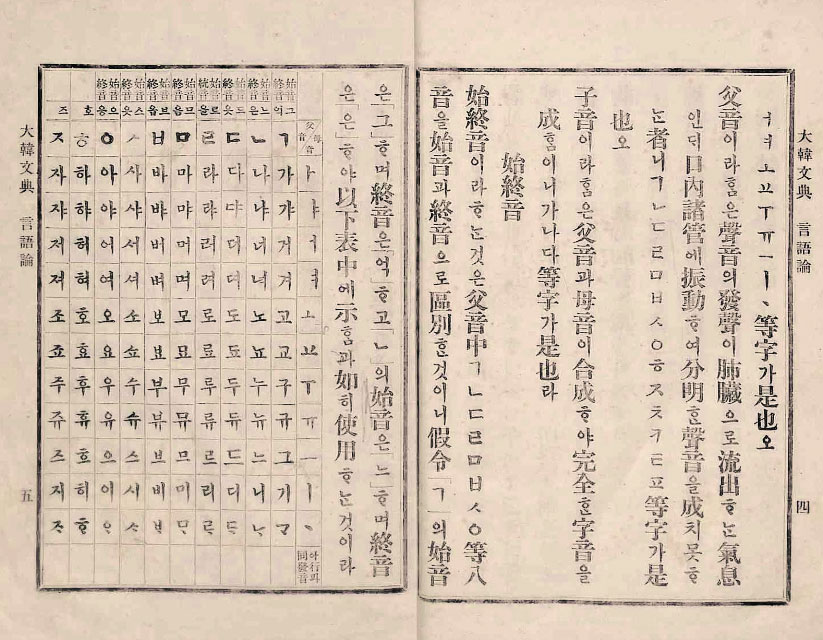 大韓文典 言語論 四
ㅓㅕㅗㅛㅜㅠㅡㅣㆍ等字가是也오
父音이라ᄒᆞᆷ은聲音의發聲이肺臟으로流出ᄒᆞᄂᆞᆫ氣息
인ᄃᆡ口內諸管에振動ᄒᆞ여分明ᄒᆞᆫ聲音을成치못ᄒᆞ
ᄂᆞᆫ者니ㄱㄴㄷㄹㅁㅂㅅㅇㅎㅈㅊㅋㅌㅍ等字가是
也오
子音이라ᄒᆞᆷ은父音과母音이合成ᄒᆞ야完全ᄒᆞᆫ字音을
成ᄒᆞᆷ이니가나다等字가是也라
始終音
始終音이라ᄒᆞᄂᆞᆫ것은父音中ㄱㄴㄷㄹㅁㅂㅅㅇ等八
音을始音과終音으로區別ᄒᆞᆫ것이니假令「ㄱ」의始音
은「그」ᄒᆞ며終音은「억」ᄒᆞ고「ㄴ」의始音은「느」ᄒᆞ며終音
은「은」ᄒᆞ야以下表中에示ᄒᆞᆷ과如히使用ᄒᆞᄂᆞᆫ것이라
母音 父音 ㅏ ㅑ ㅓ ㅕ ㅗ ㅛ ㅜ ㅠ ㅡ ㅣ ㆍ 아行과同發音
始音 終音 그 억 ㄱ 가 갸 거 겨 고 교 구 규 그 기 ᄀᆞ
始音 終音 느 은 ㄴ 나 냐 너 녀 노 뇨 누 뉴 느 니 ᄂᆞ
始音 終音 드 읏 ㄷ 다 댜 더 뎌 도 됴 두 듀 드 디 ᄃᆞ
始音 르 을 ㄹ 라 랴 러 려 로 료 루 류 르 리 ᄅᆞ
始音 終音 므 음 ㅁ 마 먀 머 며 모 묘 무 뮤 므 미 ᄆᆞ
始音 終音 브 읍 ㅂ 바 뱌 버 벼 보 뵤 부 뷰 브 비 ᄇᆞ
始音 終音 스 읏 ㅅ 사 샤 서 셔 소 쇼 수 슈 스 시 ᄉᆞ
始音 終音 으 응 ㅇ 아 야 어 여 오 요 우 유 으 이 ᄋᆞ
흐 ㅎ 하 햐 허 혀 호 효 후 휴 흐 히 ᄒᆞ
즈 ㅈ 자 쟈 저 져 조 죠 주 쥬 즈 지 ᄌᆞ
大韓文典 言語論 五